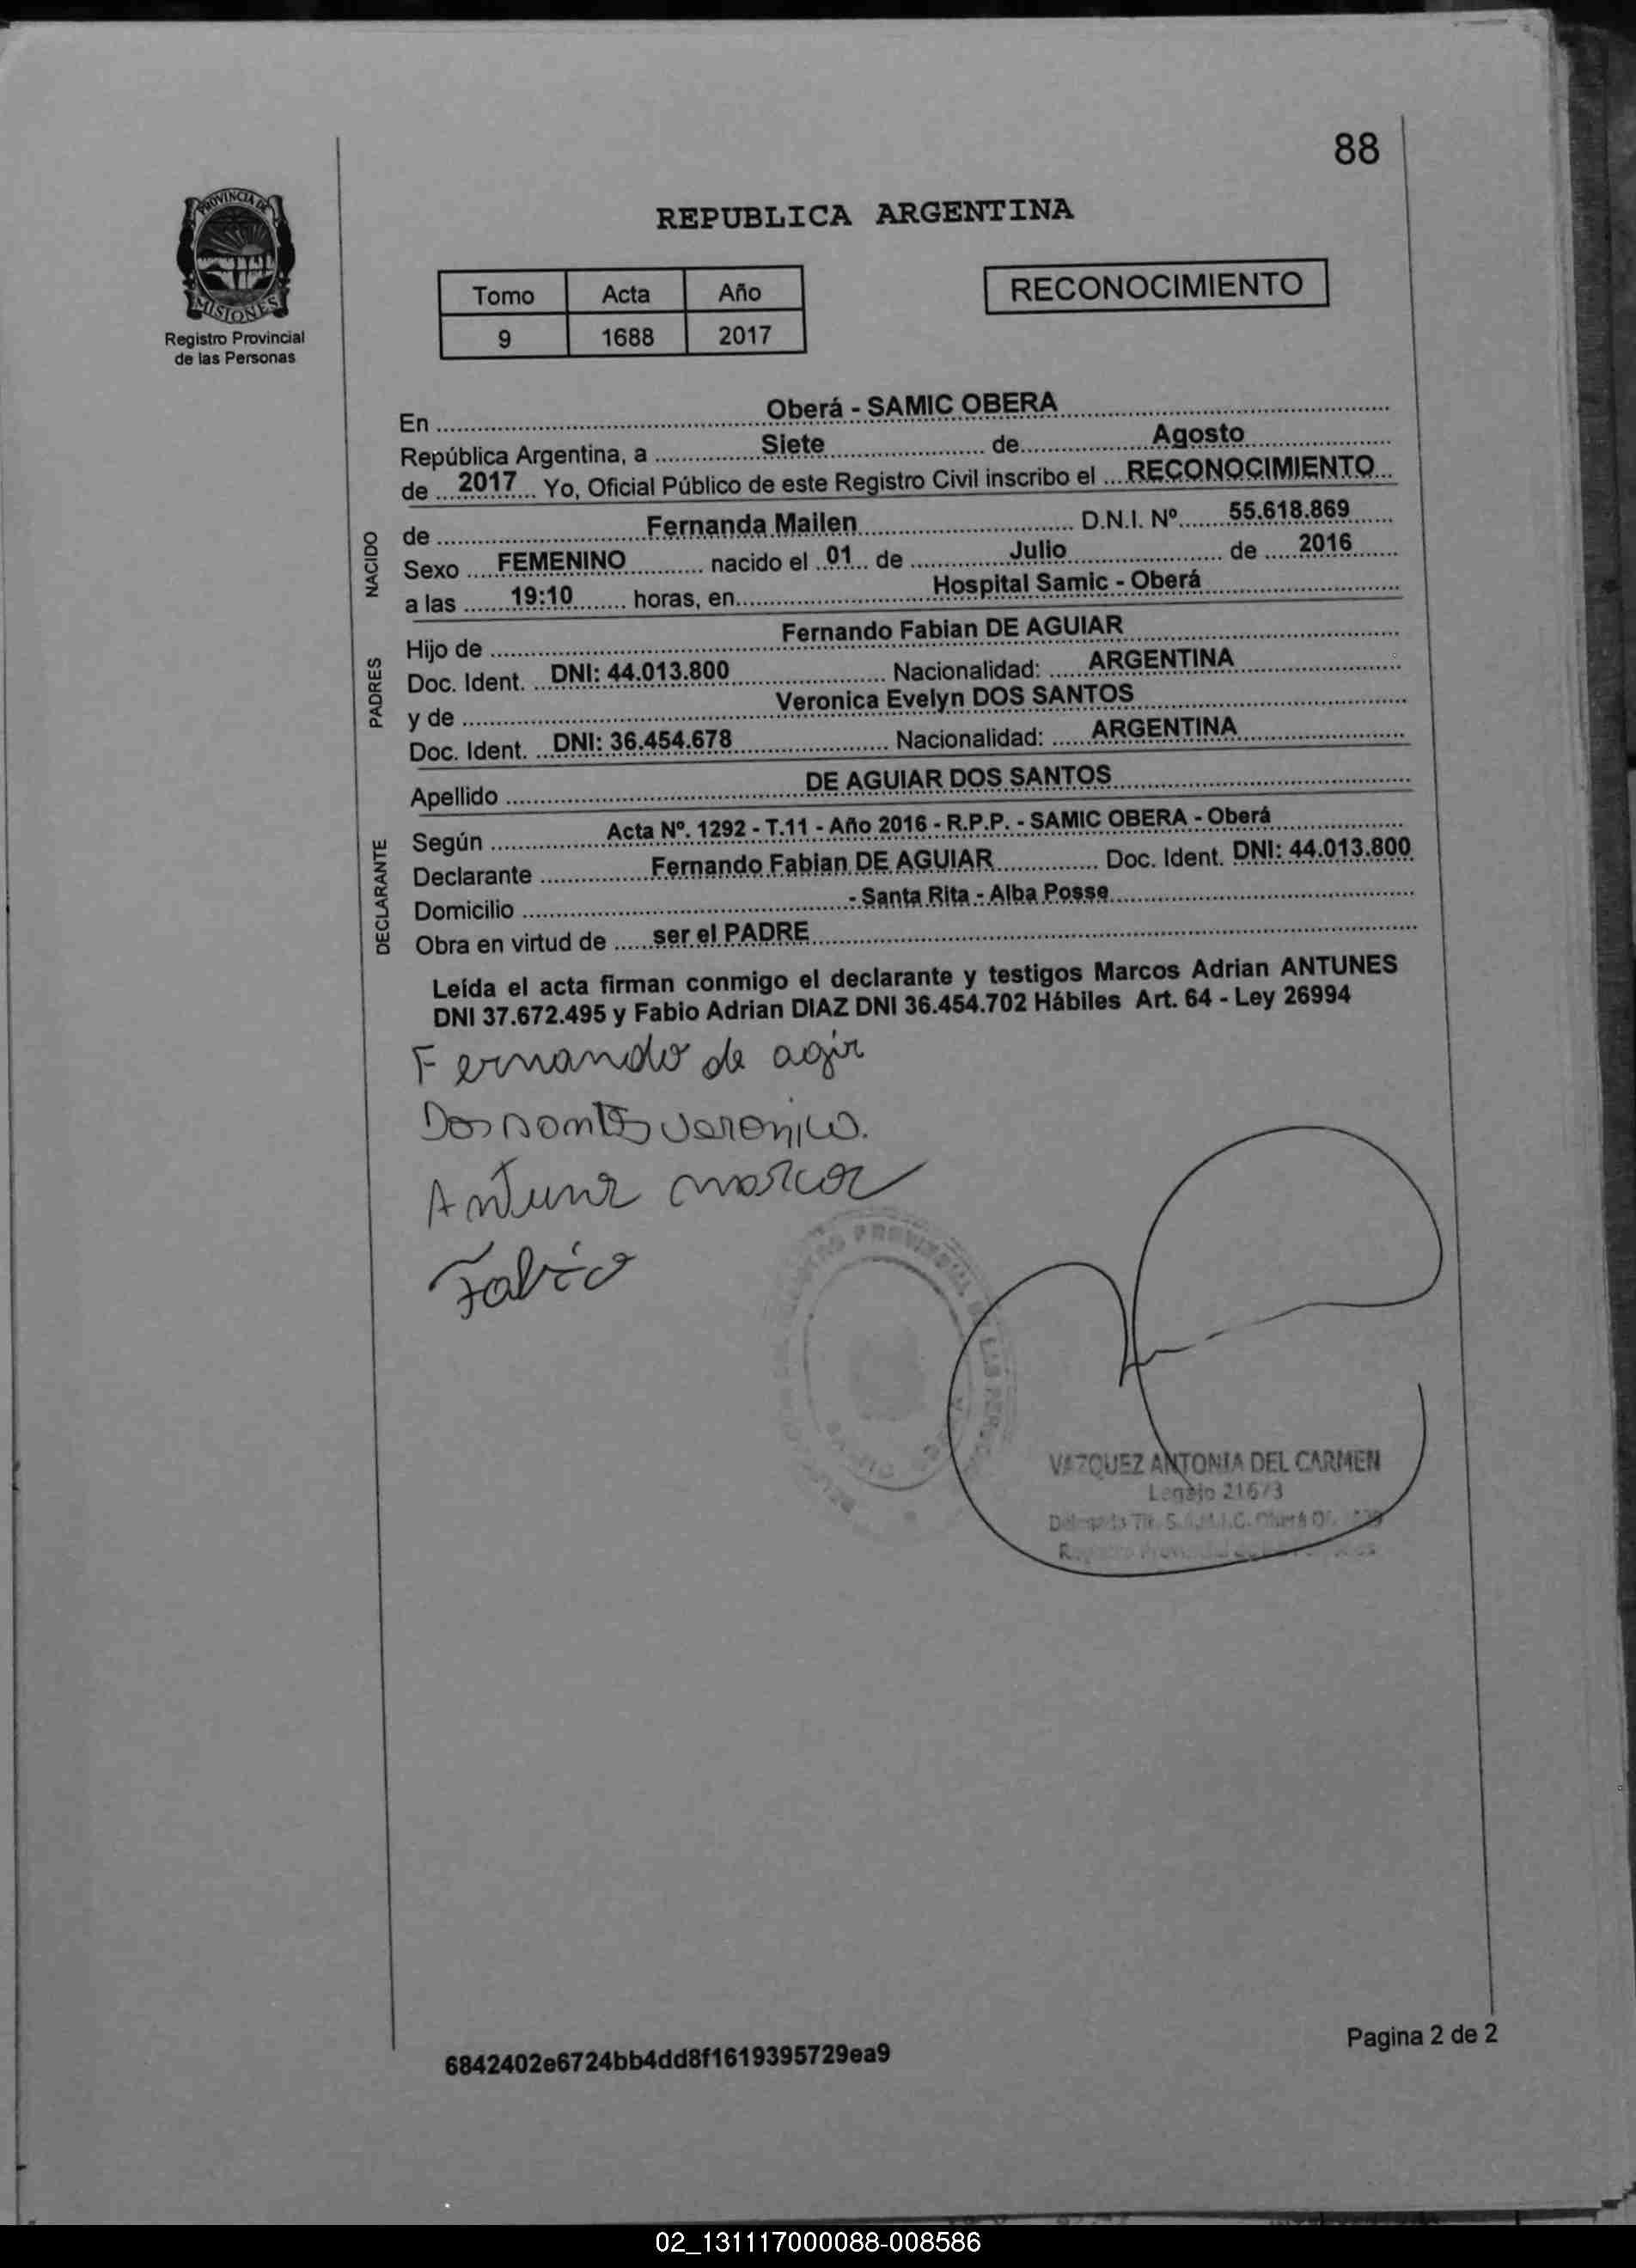 88
PROVINCIA DE
MISIONES
Registro Provincial
de las Personas
REPUBLICA ARGENTINA
Tomo Acta Año
9 1688 2017
RECONOCIMIENTO
En Oberá - SAMIC OBERA
República Argentina, a Siete de Agosto
de 2017 Yo, Oficial Público de este Registro Civil inscribo el RECONOCIMIENTO
NACIDO
de Fernanda Mailen D.N.I. Nº 55.618.869
Sexo FEMENINO nacido el 01 de Julio de 2016
a las 19:10 horas, en Hospital Samic - Oberá
PADRES
Hijo de Fernando Fabian DE AGUIAR
Doc. Ident. DNI: 44.013.800 Nacionalidad: ARGENTINA
y de Veronica Evelyn DOS SANTOS
Doc. Ident. DNI: 36.454.678 Nacionalidad: ARGENTINA
Apellido DE AGUIAR DOS SANTOS
DECLARANTE
Según Acta Nº. 1292 - T.11 - Año 2016 - R.P.P. - SAMIC OBERA - Oberá
Declarante Fernando Fabian DE AGUIAR Doc. Ident. DNI: 44.013.800
Domicilio - Santa Rita - Alba Posse
Obra en virtud de ser el PADRE
Leída el acta firman conmigo el declarante y testigos Marcos Adrian ANTUNES
DNI 37.672.495 y Fabio Adrian DIAZ DNI 36.454.702 Hábiles Art. 64 - Ley 26994
Fernando de agir
Dos santos veronica.
Antune marcos
Fabio
VAZQUEZ ANTONIA DEL CARMEN
Legajo 21673
6842402e6724bb4dd8f1619395729ea9
Pagina 2 de 2
02_131117000088-008586